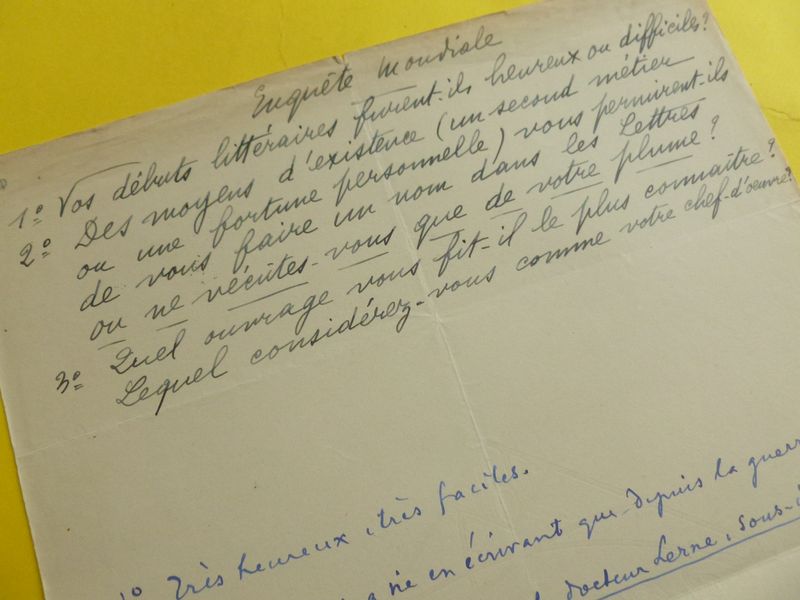 Enquête Mondiale
1º Vos débuts littéraires furent-ils heureux ou difficiles?
2º Des moyens d'existence (un second métier
ou une fortune personnelle) vous permirent-ils
de vous faire un nom dans les Lettres
ou ne vécûtes-vous que de votre plume?
3º Quel ouvrage vous fit-il le plus connaître?
Lequel considérez-vous comme votre chef-d'oeuvre?
1º Très heureux, très faciles.
vie en écrivant que depuis la guerr
docteur Lerne, sous-